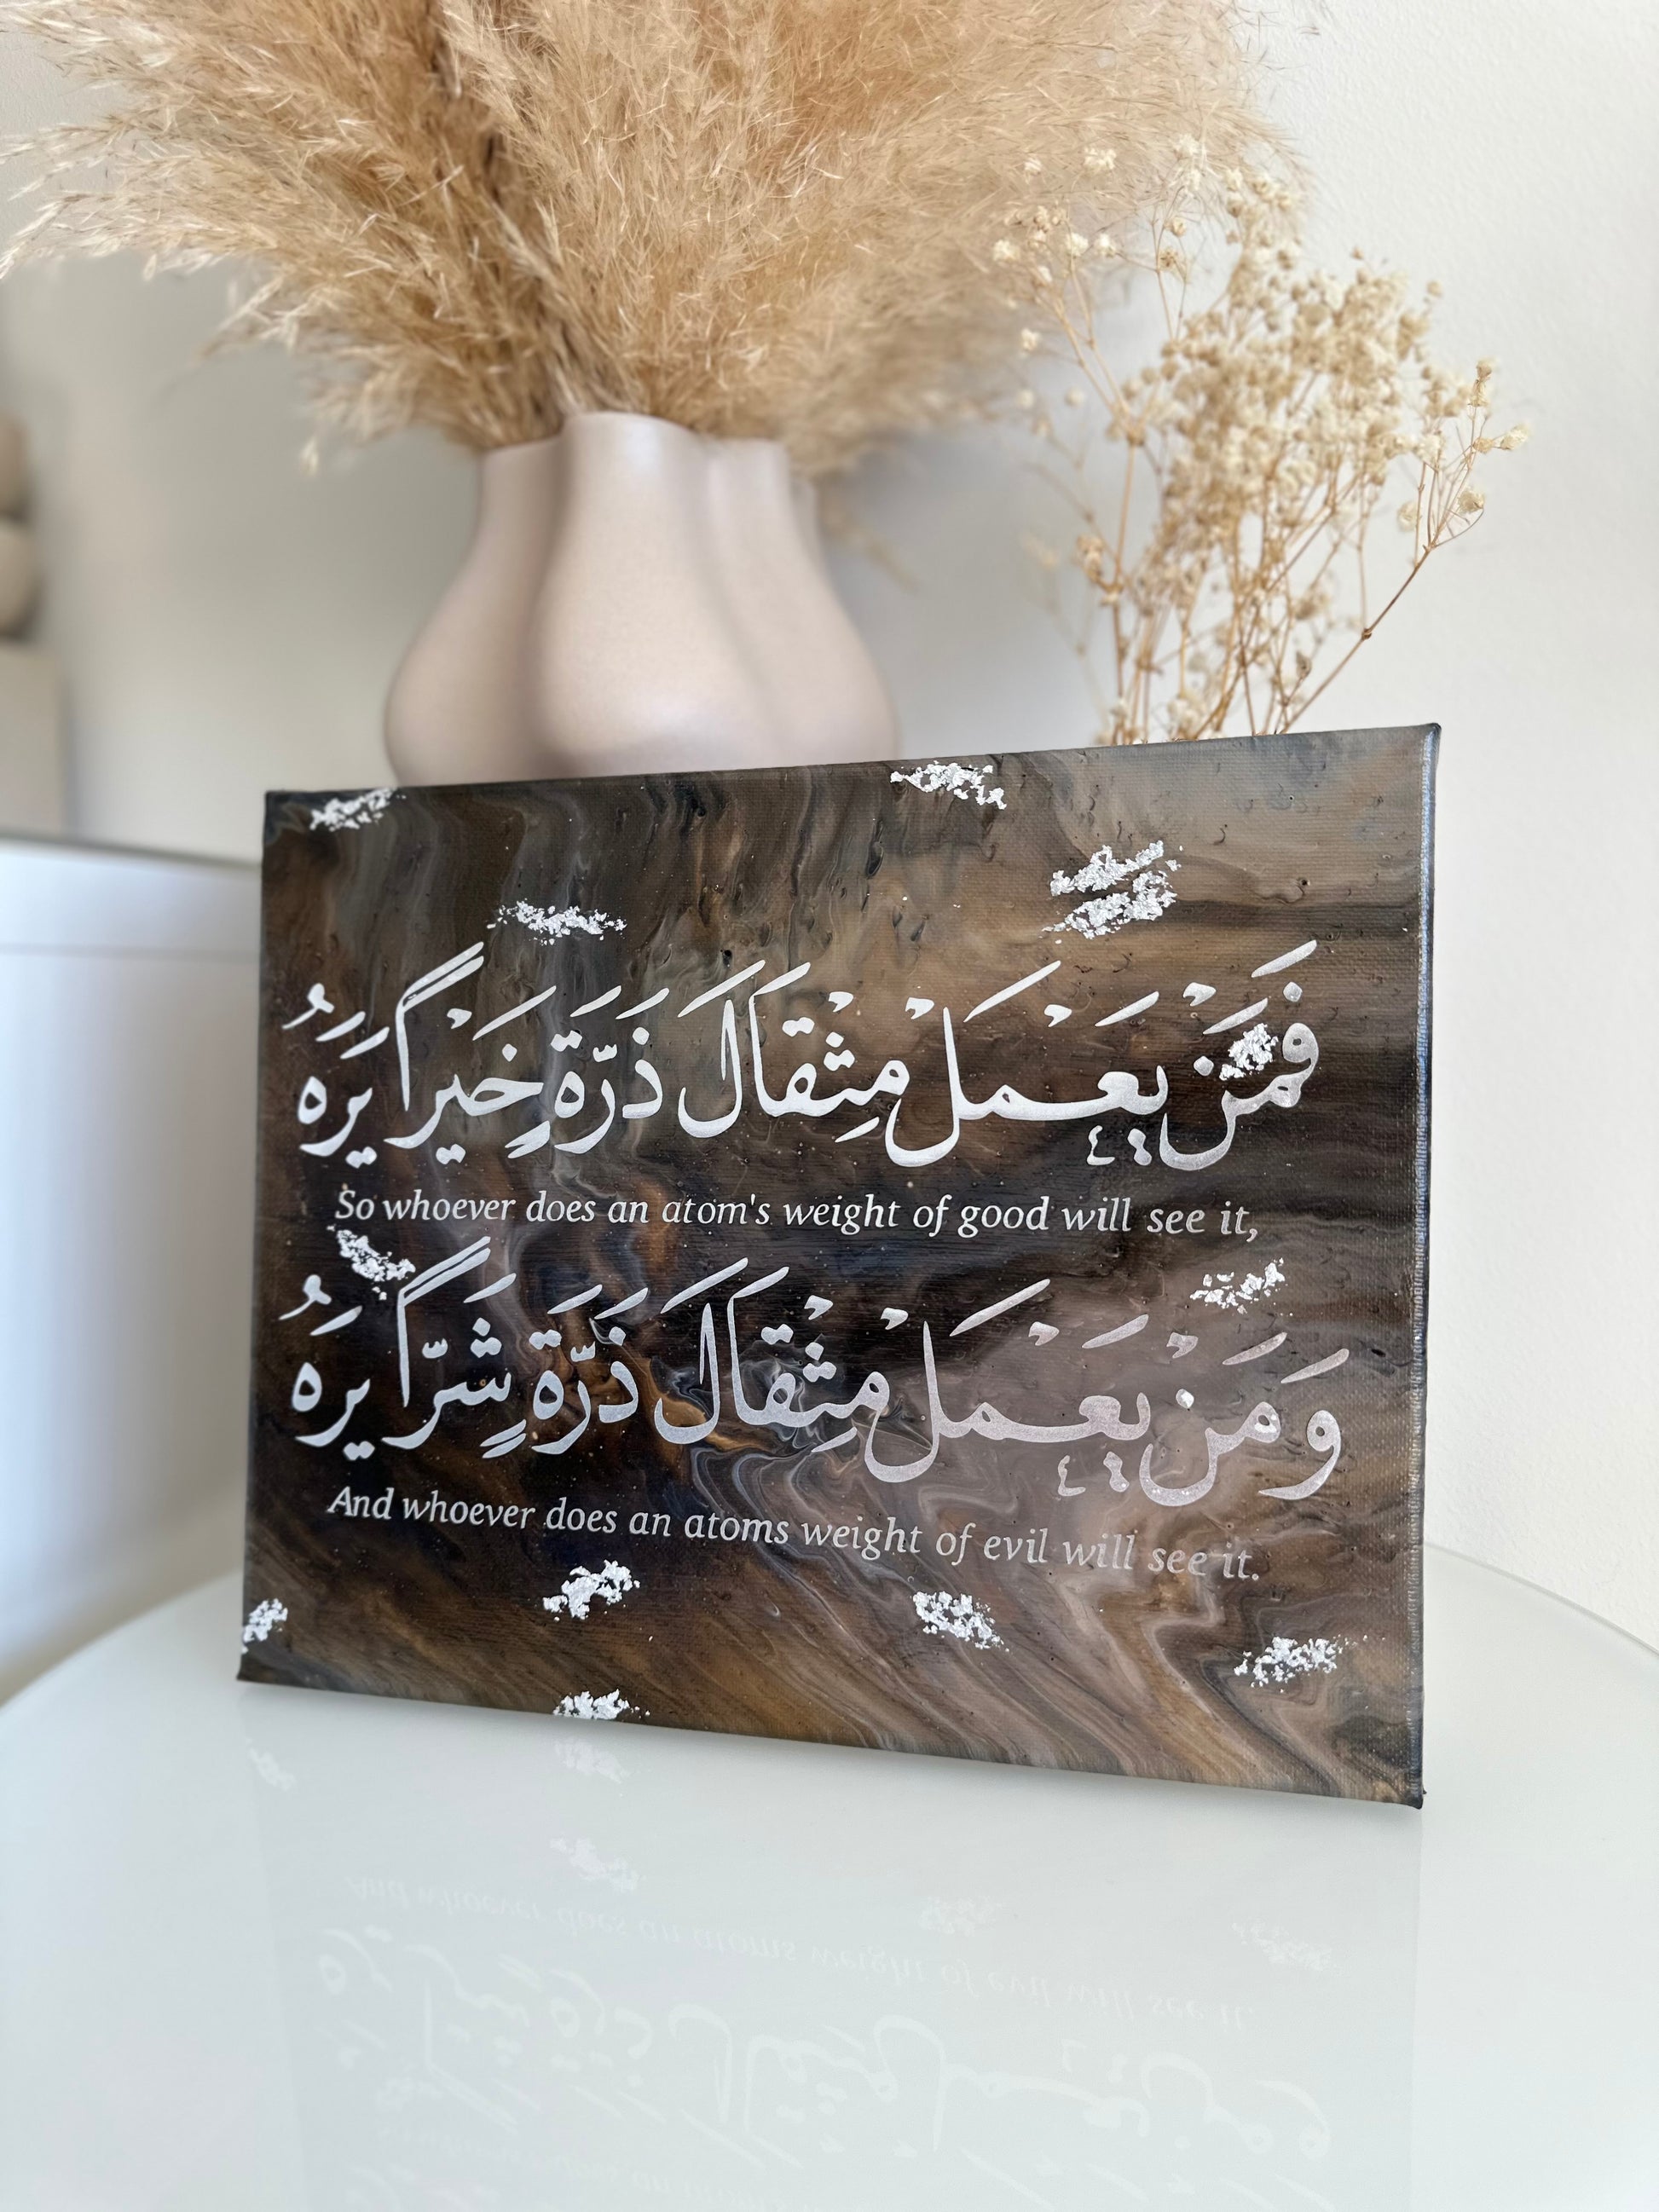 فَمَنْ يَعْمَلْ مِثْقَالَ ذَرَّةٍ خَيْرًا يَرَهُ
So whoever does an atom's weight of good will see it,
وَمَنْ يَعْمَلْ مِثْقَالَ ذَرَّةٍ شَرًّا يَرَهُ
And whoever does an atoms weight of evil will see it.